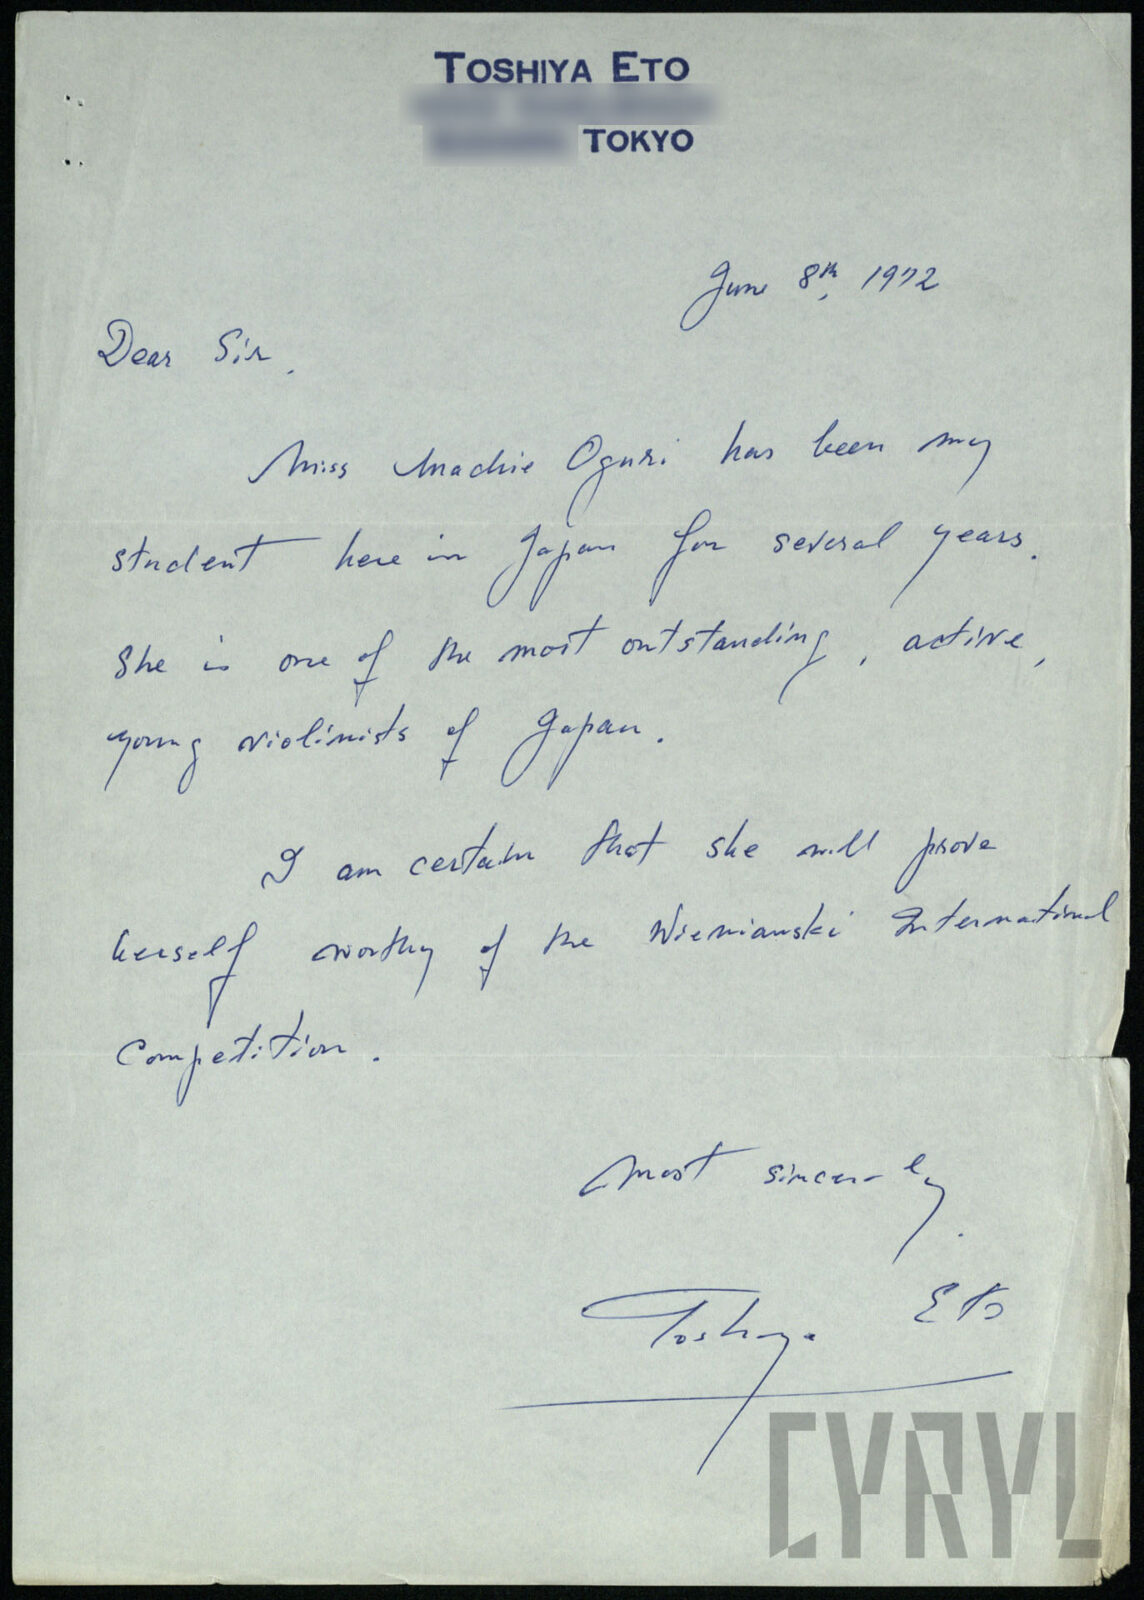 TOSHIYA ETO
TOKYO
June 8th, 1972
Dear Sir,
Miss Machie Oguri has been my
student here in Japan for several years.
She is one of the most outstanding, active,
young violinists of Japan.
I am certain that she will prove
herself worthy of the Wieniawski International
Competition.
Most sincerely,
Toshiya Eto
CYRYL